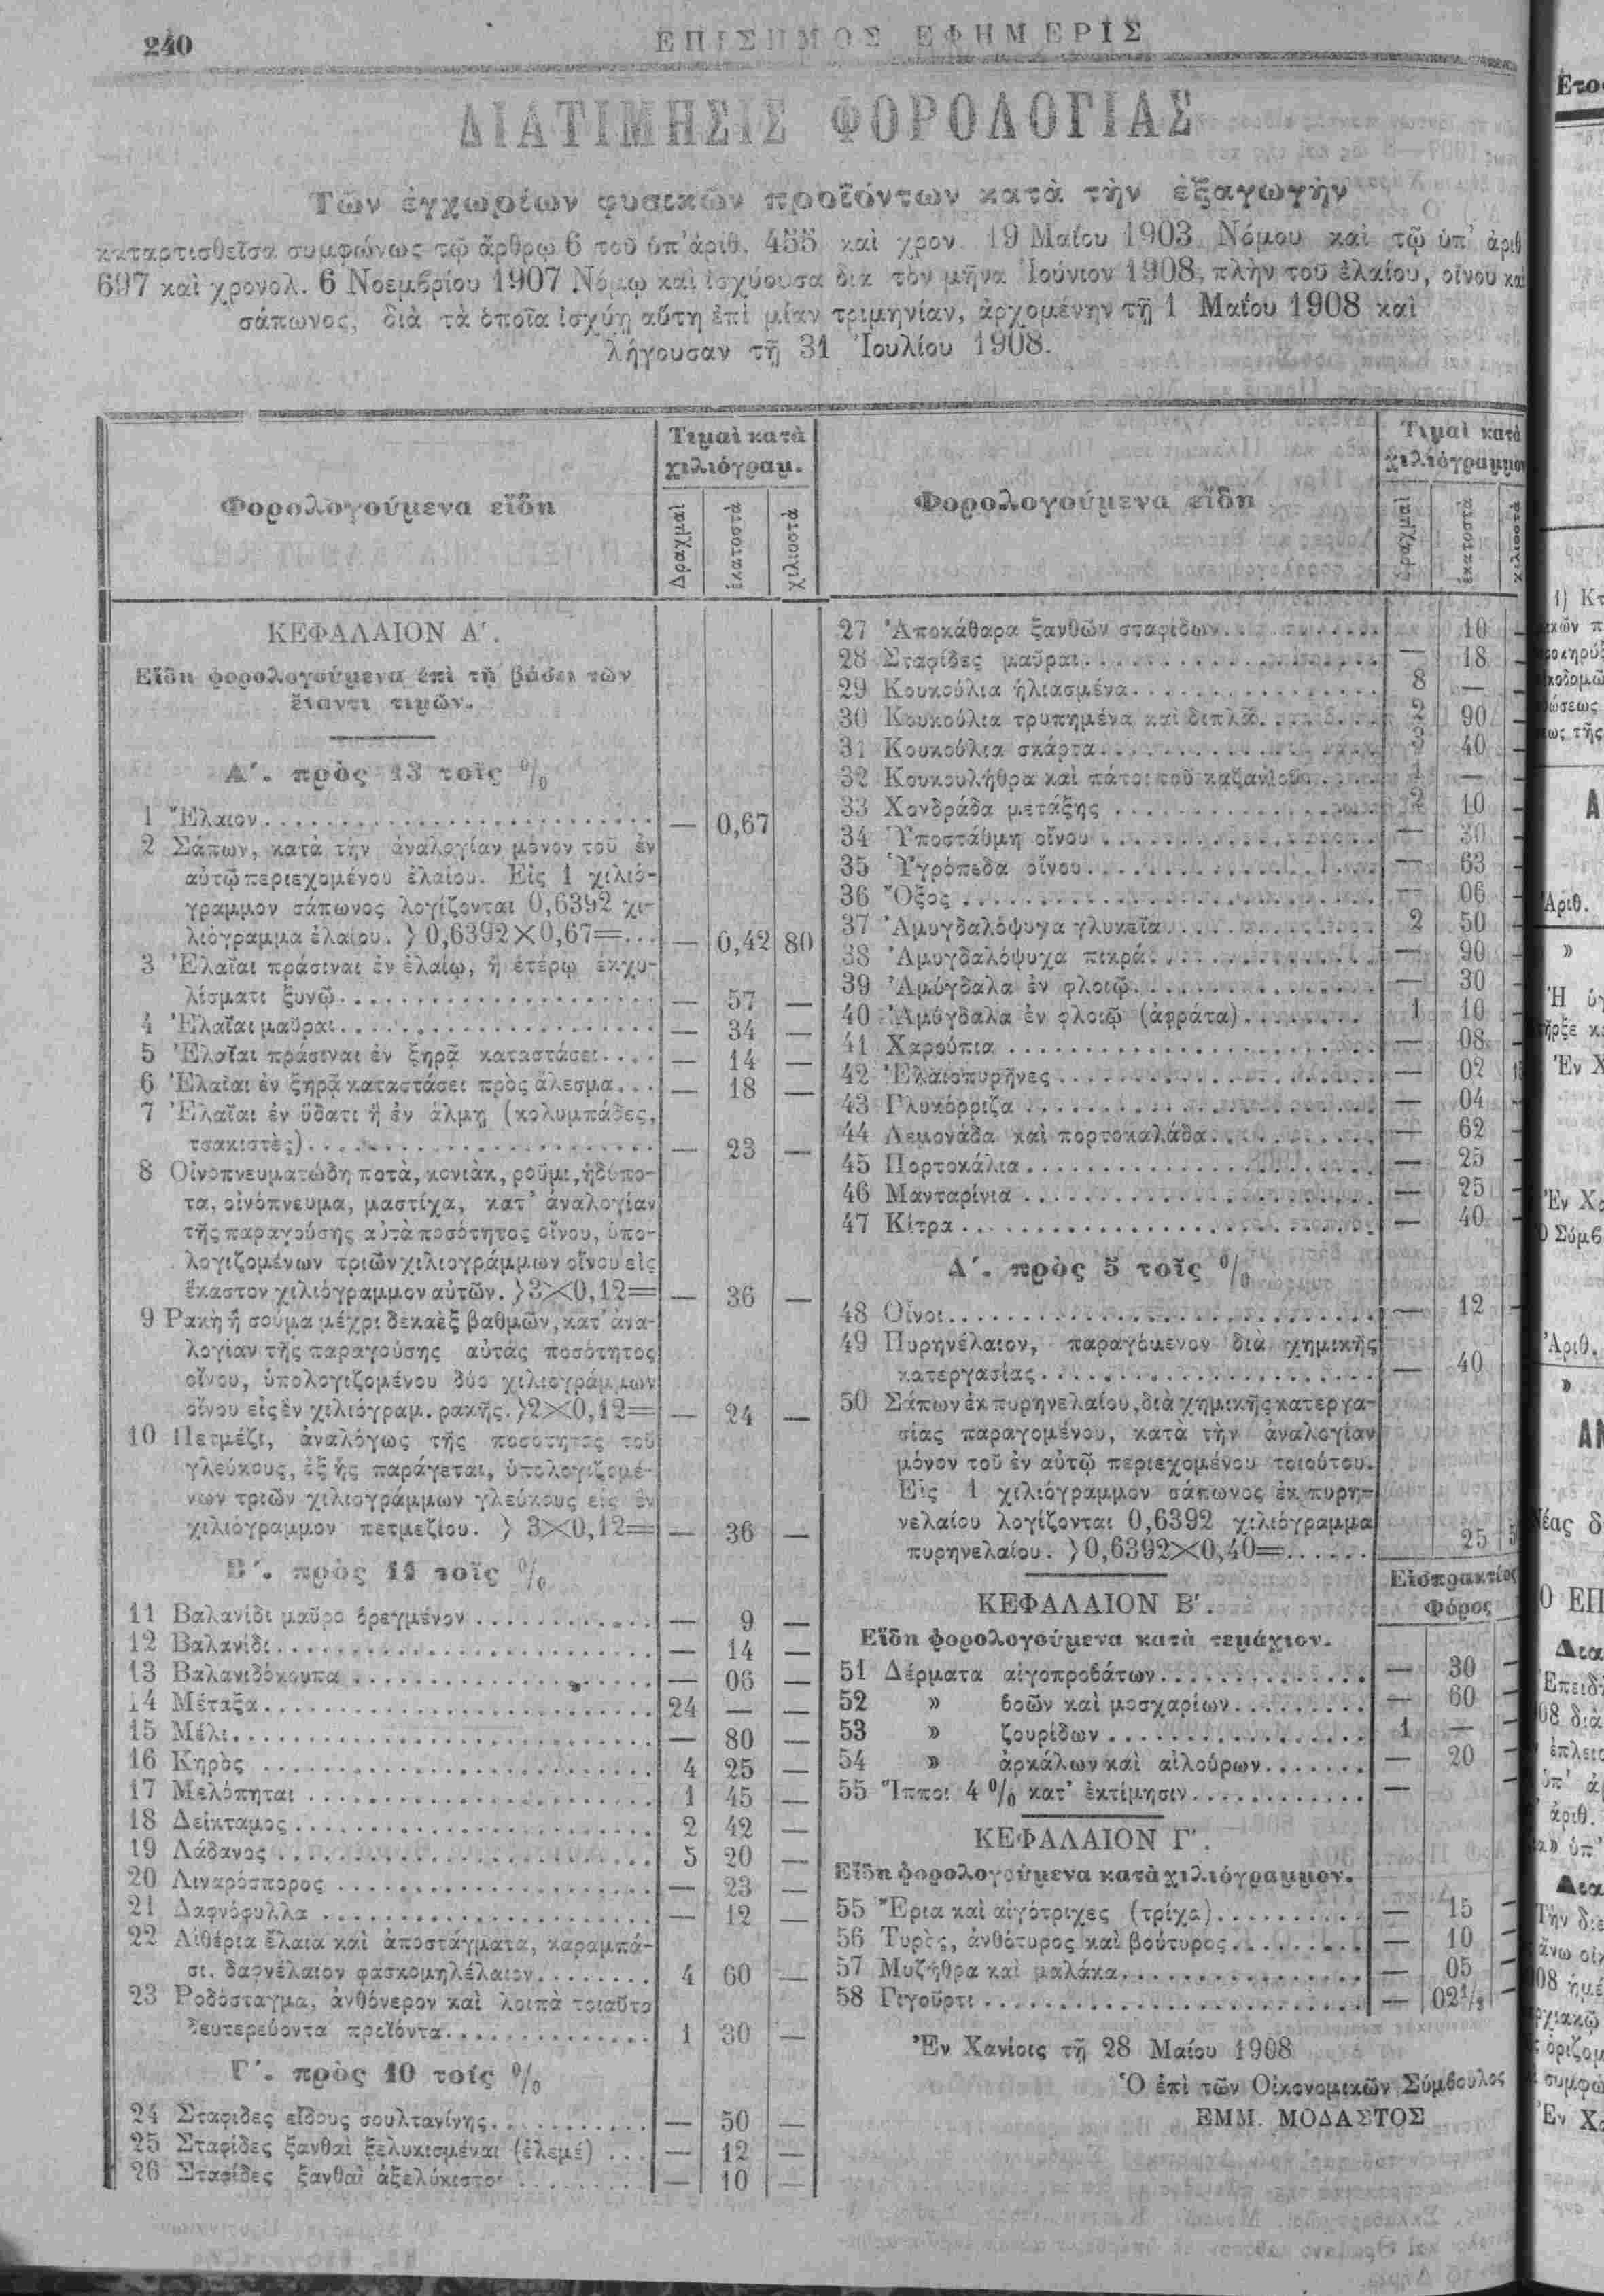 240
ΕΠΙΣΗΜΟΣ ΕΦΗΜΕΡΙΣ
ΔΙΑΤΙΜΗΣΙΣ ΦΟΡΟΛΟΓΙΑΣ
Τῶν ἐγχωρίων φυσικῶν προϊόντων κατὰ τὴν ἐξαγωγὴν
καταρτισθεῖσα συμφώνως τῷ ἄρθρῳ 6 τοῦ ὑπ' ἀριθ. 455 καὶ χρον. 19 Μαΐου 1903 Νόμου καὶ τῷ ὑπ' ἀριθ
697 καὶ χρονολ. 6 Νοεμβρίου 1907 Νόμῳ καὶ ἰσχύουσα διὰ τὸν μῆνα Ἰούνιον 1908, πλὴν τοῦ ἐλαίου, οἴνου καὶ
σάπωνος, διὰ τὰ ὁποῖα ἰσχύῃ αὕτη ἐπὶ μίαν τριμηνίαν, ἀρχομένην τῇ 1 Μαΐου 1908 καὶ
λήγουσαν τῇ 31 Ἰουλίου 1908.
Φορολογούμενα εἴδη
Τιμαὶ κατὰ
χιλιόγραμ.
Δραχμαὶ
ἑκατοστὰ
χιλιοστὰ
ΚΕΦΑΛΑΙΟΝ Α'.
Εἴδη φορολογούμενα ἐπὶ τῇ βάσει τῶν
ἔναντι τιμῶν.
Α'. πρὸς 13 τοῖς %
1 Ἔλαιον — 0,67
2 Σάπων, κατὰ τὴν ἀναλογίαν μόνον τοῦ ἐν
αὐτῷ περιεχομένου ἐλαίου. Εἰς 1 χιλιό-
γραμμον σάπωνος λογίζονται 0,6392 χι-
λιόγραμμα ἐλαίου. } 0,6392×0,67=... — 0,42 80
3 Ἐλαῖαι πράσιναι ἐν ἐλαίῳ, ἢ ἑτέρῳ ἐκχυ-
λίσματι ξυνῷ — 57 —
4 Ἐλαῖαι μαῦραι — 34 —
5 Ἐλαῖαι πράσιναι ἐν ξηρᾷ καταστάσει — 14 —
6 Ἐλαῖαι ἐν ξηρᾷ καταστάσει πρὸς ἄλεσμα — 18 —
7 Ἐλαῖαι ἐν ὕδατι ἢ ἐν ἅλμῃ (κολυμπάδες,
τσακιστὲς) — 23 —
8 Οἰνοπνευματώδη ποτὰ, κονιὰκ, ροῦμι, ἡδύπο-
τα, οἰνόπνευμα, μαστίχα, κατ' ἀναλογίαν
τῆς παραγούσης αὐτὰ ποσότητος οἴνου, ὑπο-
λογιζομένων τριῶν χιλιογράμμων οἴνου εἰς
ἕκαστον χιλιόγραμμον αὐτῶν. } 3×0,12= — 36 —
9 Ρακὴ ἢ σούμα μέχρι δεκαὲξ βαθμῶν, κατ' ἀνα-
λογίαν τῆς παραγούσης αὐτὰς ποσότητος
οἴνου, ὑπολογιζομένου δύο χιλιογράμμων
οἴνου εἰς ἓν χιλιόγραμ. ρακῆς. } 2×0,12= — 24 —
10 Πετμέζι, ἀναλόγως τῆς ποσότητος τοῦ
γλεύκους, ἐξ ἧς παράγεται, ὑπολογιζομέ-
νων τριῶν χιλιογράμμων γλεύκους εἰς ἓν
χιλιόγραμμον πετμεζίου. } 3×0,12= — 36 —
Β'. πρὸς 11 τοῖς %
11 Βαλανίδι μαῦρο βρεγμένον — 9 —
12 Βαλανίδι — 14 —
13 Βαλανιδόκουπα — 06 —
14 Μέταξα 24 — —
15 Μέλι — 80 —
16 Κηρὸς 4 25 —
17 Μελόπηται 1 45 —
18 Δείκταμος 2 42 —
19 Λάδανος 5 20 —
20 Λιναρόσπορος — 23 —
21 Δαφνόφυλλα — 12 —
22 Αἰθέρια ἔλαια καὶ ἀποστάγματα, καραμπά-
σι, δαφνέλαιον φασκομηλέλαιον 4 60 —
23 Ροδόσταγμα, ἀνθόνερον καὶ λοιπὰ τοιαῦτα
δευτερεύοντα προϊόντα 1 30 —
Γ'. πρὸς 10 τοίς %
24 Σταφιδες εἴδους σουλτανίνης — 50 —
25 Σταφίδες ξανθαὶ ξελυκισμέναι (ἐλεμέ) — 12 —
26 Σταφίδες ξανθαὶ ἀξελύκιστοι — 10 —
Φορολογούμενα εἴδη
Τιμαὶ κατὰ
χιλιόγραμμον
δραχμαὶ
ἑκατοστὰ
χιλιοστὰ
27 Ἀποκάθαρα ξανθῶν σταφίδων 10 —
28 Σταφίδες μαῦραι — 18 —
29 Κουκούλια ἡλιασμένα 8 — —
30 Κουκούλια τρυπημένα καὶ διπλᾶ 2 90 —
31 Κουκούλια σκάρτα 3 40 —
32 Κουκουλήθρα καὶ πάτοι τοῦ καζανίου 1 — —
33 Χονδράδα μετάξης 2 10 —
34 Ὑποστάθμη οἴνου — 30 —
35 Ὑγρόπεδα οἴνου — 63 —
36 Ὄξος — 06 —
37 Ἀμυγδαλόψυχα γλυκεῖα 2 50 —
38 Ἀμυγδαλόψυχα πικρά — 90 —
39 Ἀμύγδαλα ἐν φλοιῷ — 30 —
40 Ἀμύγδαλα ἐν φλοιῷ (ἀφράτα) 1 10 —
41 Χαρούπια — 08 —
42 Ἐλαιοπυρῆνες — 02
43 Γλυκόρριζα — 04 —
44 Λεμονάδα καὶ πορτοκαλάδα — 62 —
45 Πορτοκάλια — 25 —
46 Μανταρίνια — 25 —
47 Κίτρα — 40 —
Δ'. πρὸς 5 τοῖς %
48 Οἶνοι — 12 —
49 Πυρηνέλαιον, παραγόμενον διὰ χημικῆς
κατεργασίας — 40
50 Σάπων ἐκ πυρηνελαίου, διὰ χημικῆς κατεργα-
σίας παραγομένου, κατὰ τὴν ἀναλογίαν
μόνον τοῦ ἐν αὐτῷ περιεχομένου τοιούτου.
Εἰς 1 χιλιόγραμμον σάπωνος ἐκ πυρη-
νελαίου λογίζονται 0,6392 χιλιόγραμμα
πυρηνελαίου. } 0,6392×0,40= 25 5
ΚΕΦΑΛΑΙΟΝ Β'.
Εἰσπρακτέος
Φόρος
Εἴδη φορολογούμενα κατὰ τεμάχιον.
51 Δέρματα αἰγοπροβάτων — 30 —
52 » βοῶν καὶ μοσχαρίων — 60 —
53 » ζουρίδων 1 — —
54 » ἀρκάλων καὶ αἰλούρων — 20 —
55 Ἵπποι 4 % κατ' ἐκτίμησιν —
ΚΕΦΑΛΑΙΟΝ Γ'.
Εἴδη φορολογούμενα κατὰ χιλιόγραμμον.
55 Ἔρια καὶ αἰγότριχες (τρίχα) — 15 —
56 Τυρὸς, ἀνθότυρος καὶ βούτυρος — 10 —
57 Μυζήθρα καὶ μαλάκα — 05 —
58 Γιγοῦρτι — 02½ —
Ἐν Χανίοις τῇ 28 Μαΐου 1908
Ὁ ἐπὶ τῶν Οἰκονομικῶν Σύμβουλος
ΕΜΜ. ΜΟΔΑΣΤΟΣ